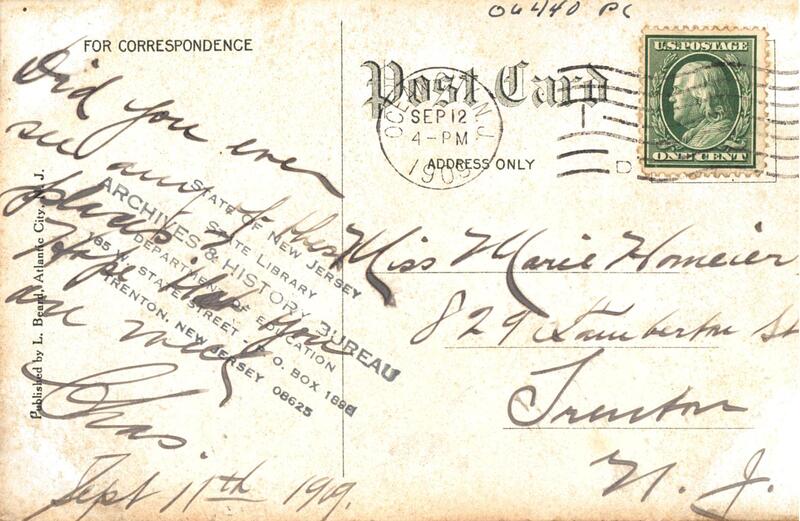 06440 PC
FOR CORRESPONDENCE
Post Card
ADDRESS ONLY
U.S. POSTAGE
ONE CENT
SEP 12
4 - PM
1909
N.J.
D
Did you ever
see any of these
plants
Hope that you
are well
Chas.
Sept 11th 1909.
Miss Marie Homeier
829 Lamberton St
Trenton
N. J.
STATE OF NEW JERSEY
STATE LIBRARY
ARCHIVES & HISTORY BUREAU
DEPARTMENT OF EDUCATION
185 W. STATE STREET - P. O. BOX 1898
TRENTON, NEW JERSEY 08625
Published by L. Beard, Atlantic City, N. J.